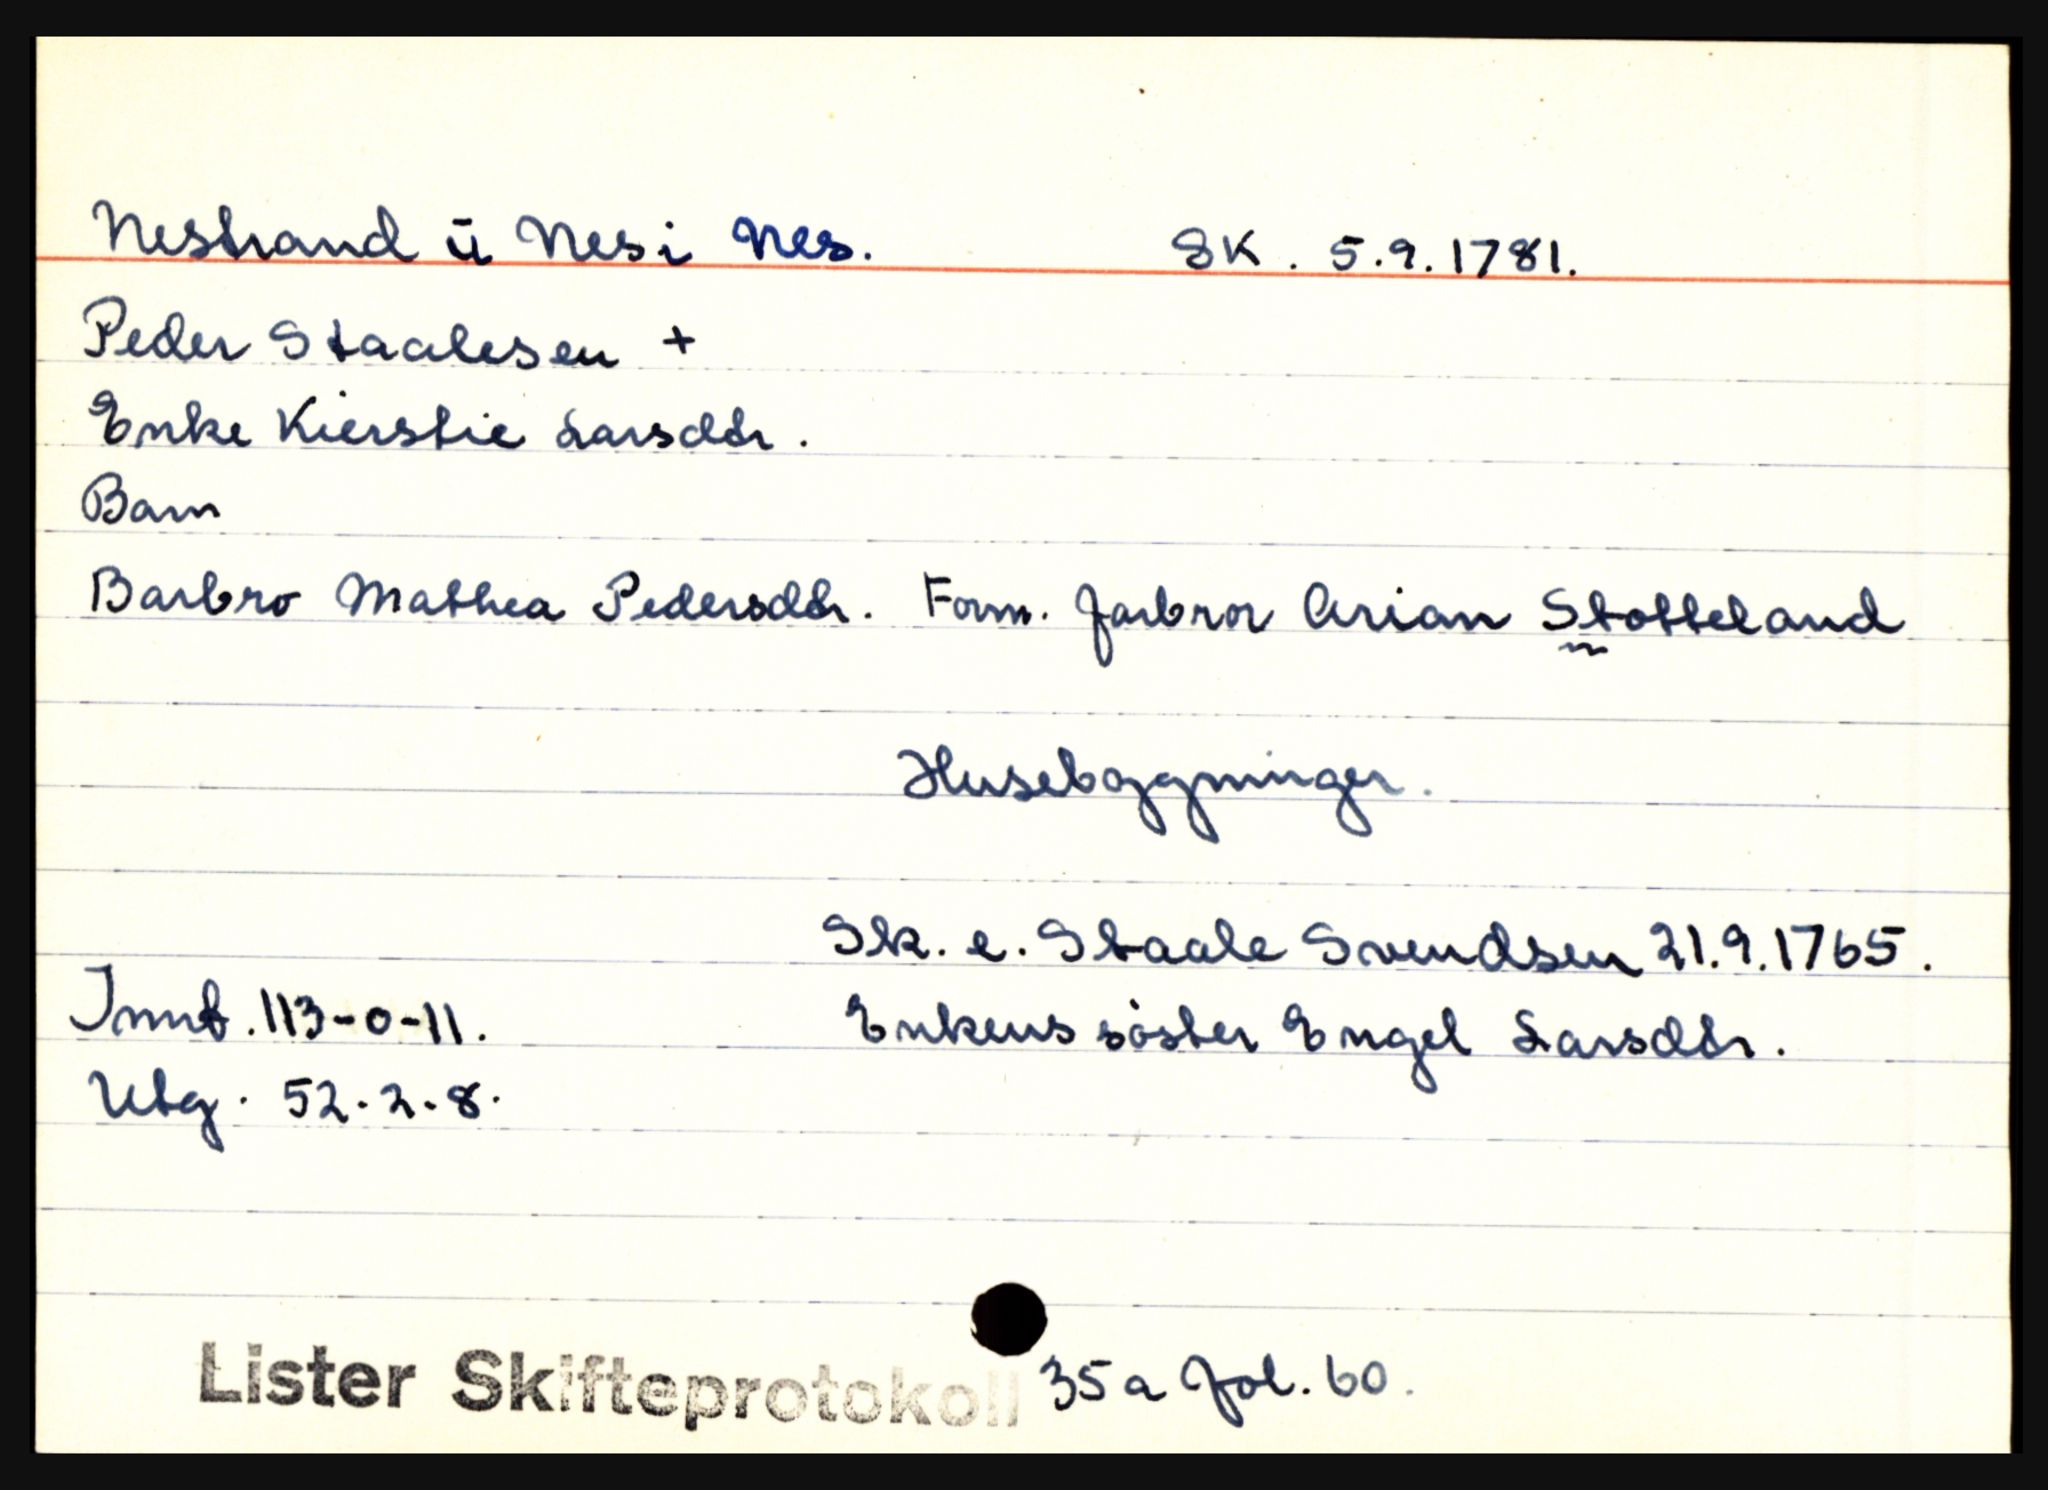 Nestrand ū Nes i Nes. SK. 5.9.1781.
Peder Staalesen +
Enke Kierstie Larsdtr.
Barn
Barbro Mathea Pedersdtr. Form. farbror Arian Stotteland
Husebygninger.
Sk. e. Staale Svendsen 21.9.1765.
Innt. 113-0-11. Enkens söster Engel Larsdtr.
Utg. 52.2.8.
Lister Skifteprotokoll 35a fol. 60.